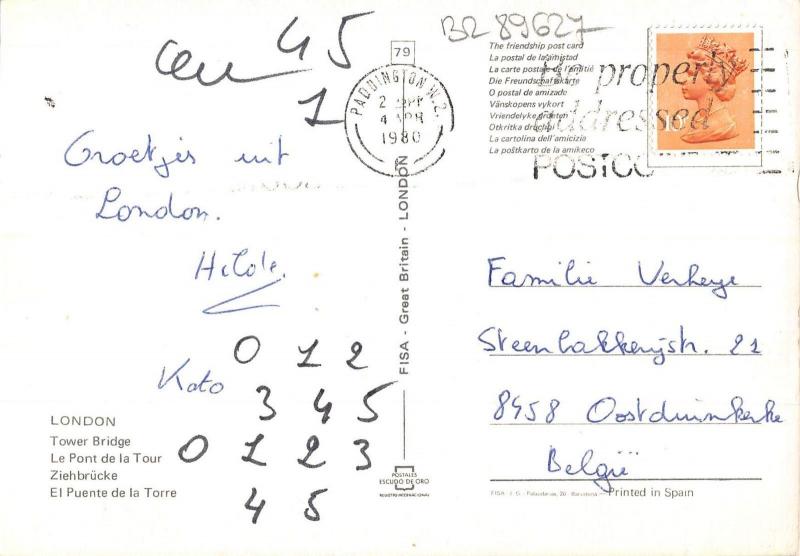 45
1
79
BR 89627
The friendship post card
La postal de la amistad
La carte postale de l'amitié
Die Freundschaftskarte
O postal de amizade
Vänskopens vykort
Vriendelyke groeten
Otkritka druchoi
La cartolina dell'amicizia
La poŝtkarto de la amikeco
Be properly
addressed
POSTCO
PADDINGTON W.2.
2 PM
4 APR
1980
Groetjes uit
London.
Hilde.
Kato
0 1 2
3 4 5
0 1 2 3
4 5
LONDON
Tower Bridge
Le Pont de la Tour
Ziehbrücke
El Puente de la Torre
FISA - Great Britain - LONDON
POSTALES
ESCUDO DE ORO
REGISTRO INTERNACIONAL
Familie Verheye
Steenbakkerijstr. 21
8458 Oostduinkerke
België
FISA - I. G. - Palaudarias, 26 - Barcelona
Printed in Spain